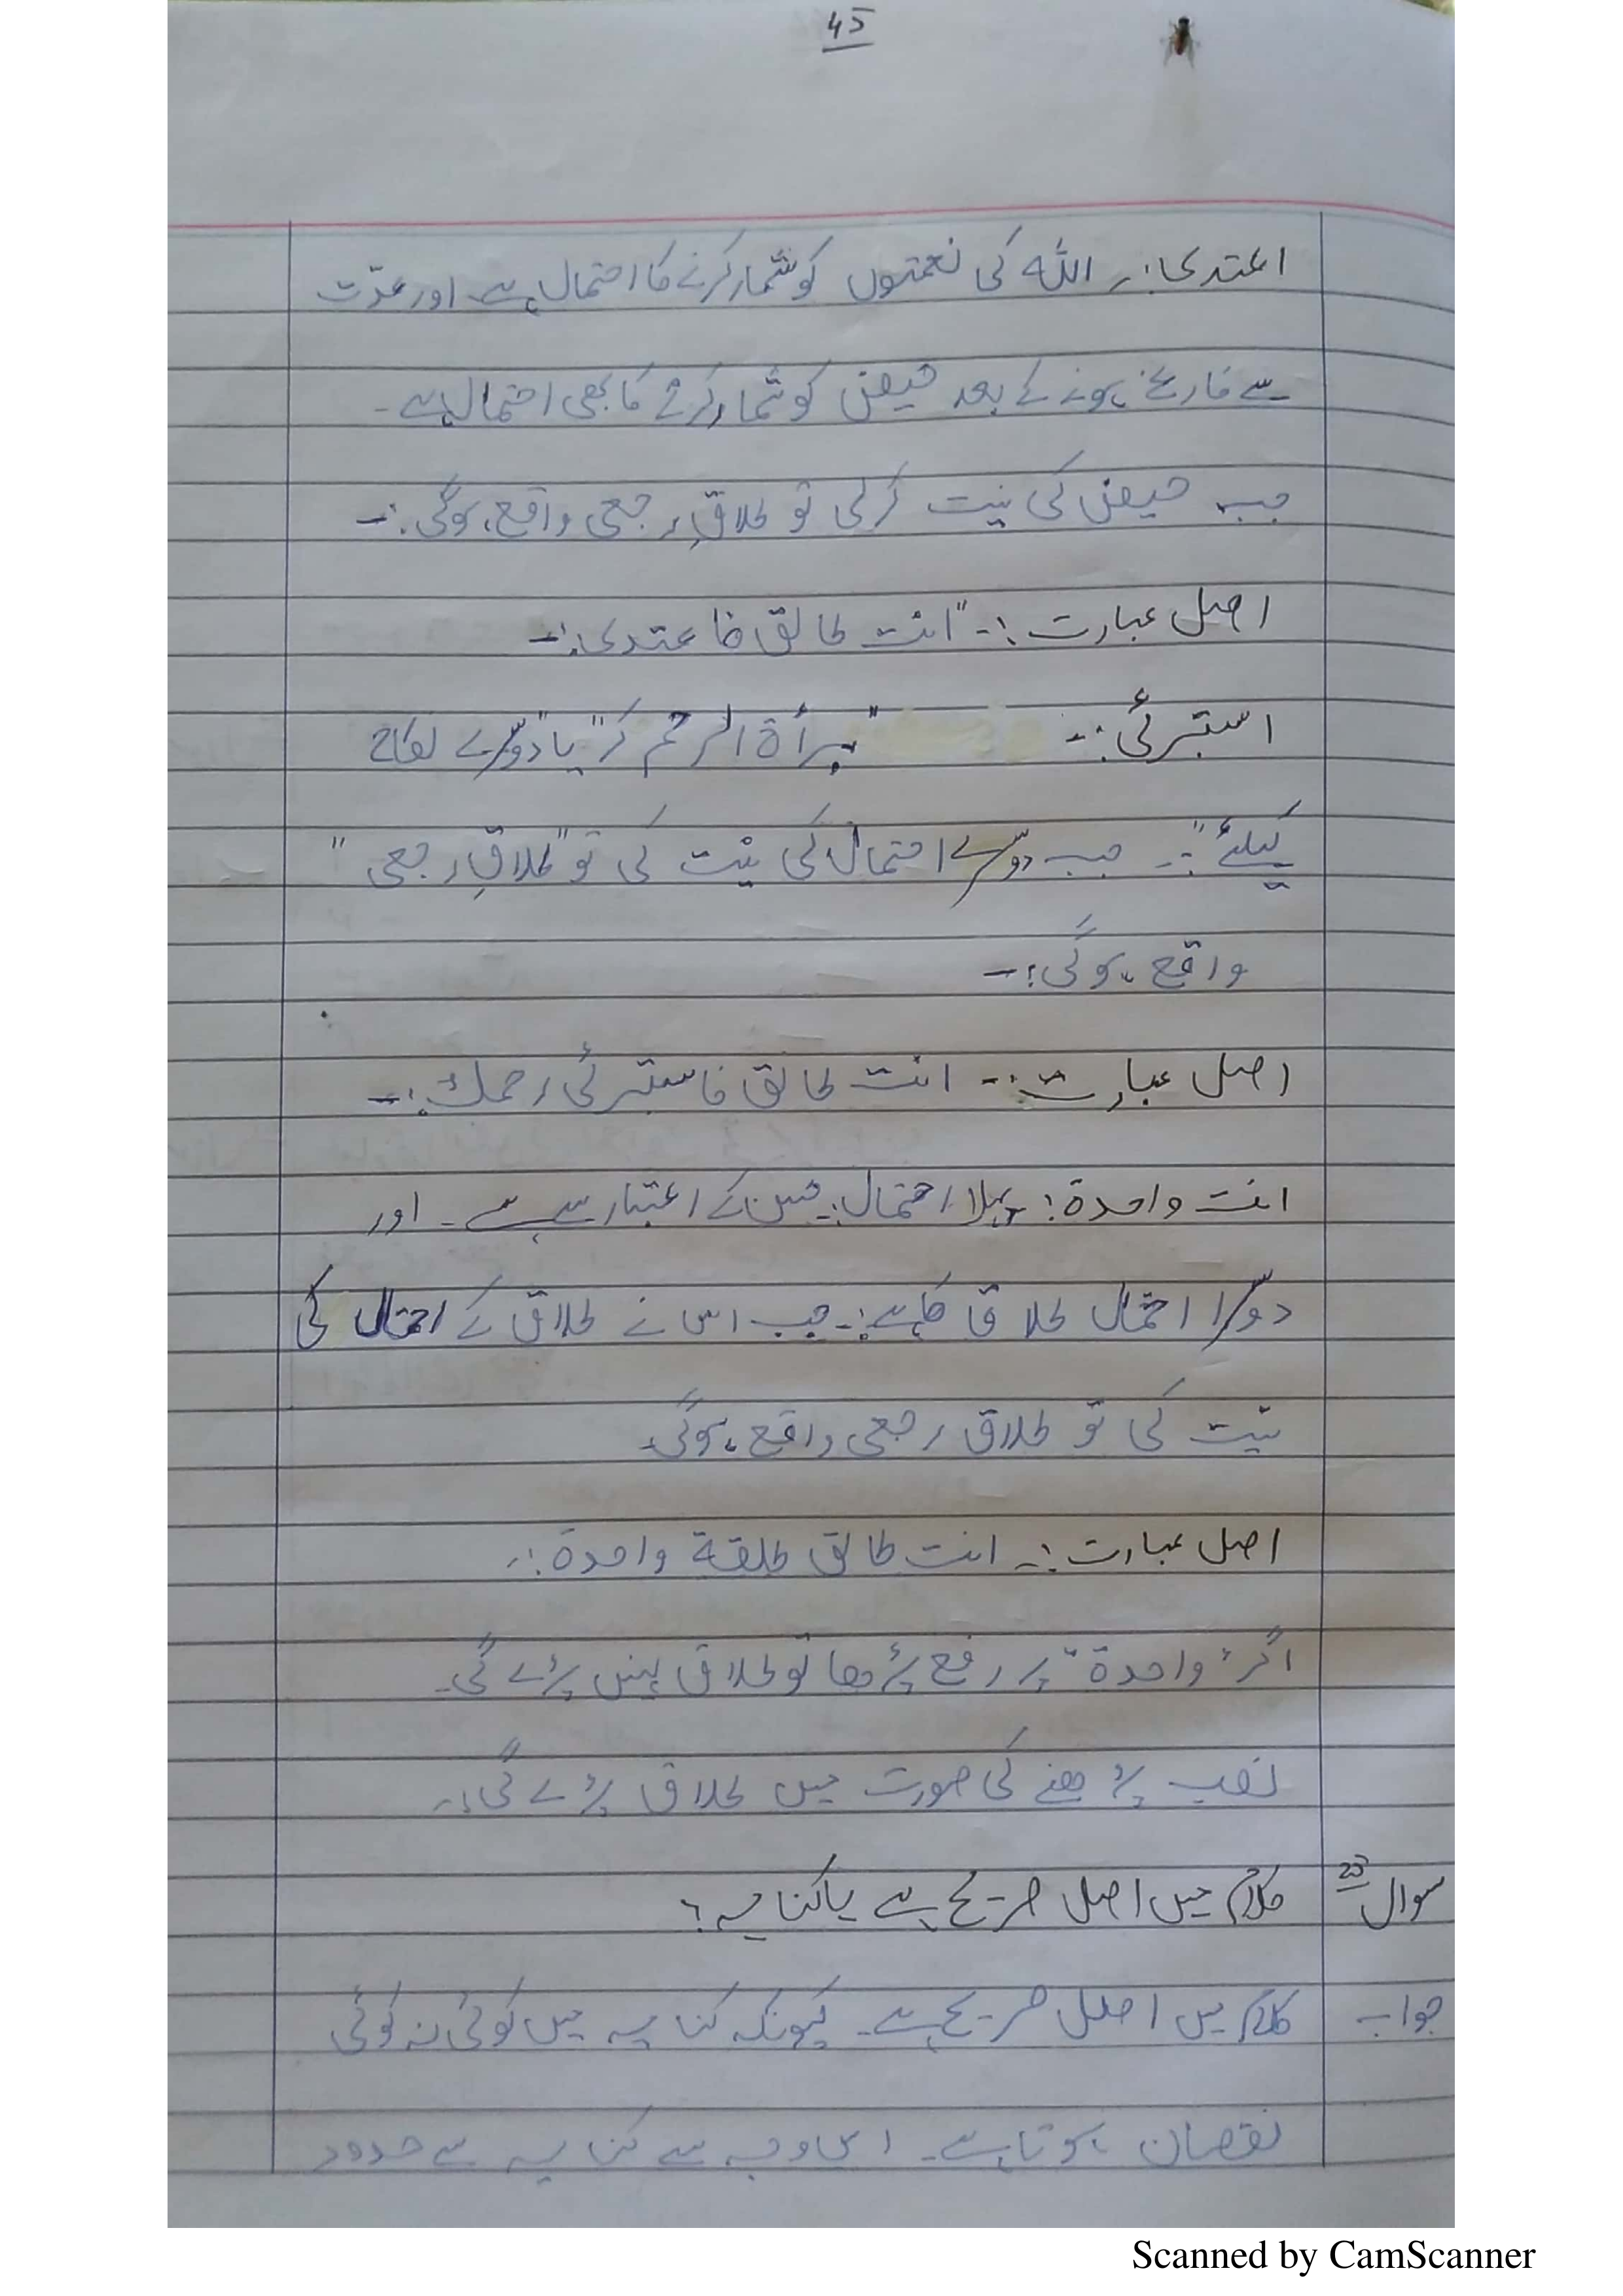 45
اعتدی:۔ اللہ کی نعمتوں کو شمار کرنے کا احتمال ہے۔ اور عدّت
سے فارغ ہونے کے بعد حیض کو شمار کرنے کا بھی احتمال ہے۔
جب حیض کی نیت کرلی تو طلاقِ رجعی واقع ہوگی:۔
اصل عبارت:۔ "انت طالق فاعتدی:۔
استبرئی:۔ "برأۃ الرحم کر" یا "دوسرے نکاح
کیلئے":۔ جب دوسرے احتمال کی نیت کی تو "طلاقِ رجعی"
واقع ہوگی:۔
اصل عبارت:۔ انت طالق فاستبرئی رحمك:۔
انت واحدۃ: پہلا احتمال:۔ حسن کے اعتبار سے ہے۔ اور
دوسرا احتمال طلاق کا ہے:۔ جب اس نے طلاق کے احتمال کی
نیت کی تو طلاق رجعی واقع ہوگی۔
اصل عبارت:۔ انت طالق طلقۃ واحدۃ:۔
اگر "واحدۃ" پر رفع پڑھا تو طلاق نہیں پڑے گی۔
نصب پڑھنے کی صورت میں طلاق پڑے گی:۔
سوال 23 کلام میں اصل صریح ہے یا کنایہ؟
جواب کلام میں اصل صریح ہے۔ کیونکہ کنایہ میں کوئی نہ کوئی
نقصان ہوتا ہے۔ اسی وجہ سے کنایہ سے حدود
Scanned by CamScanner